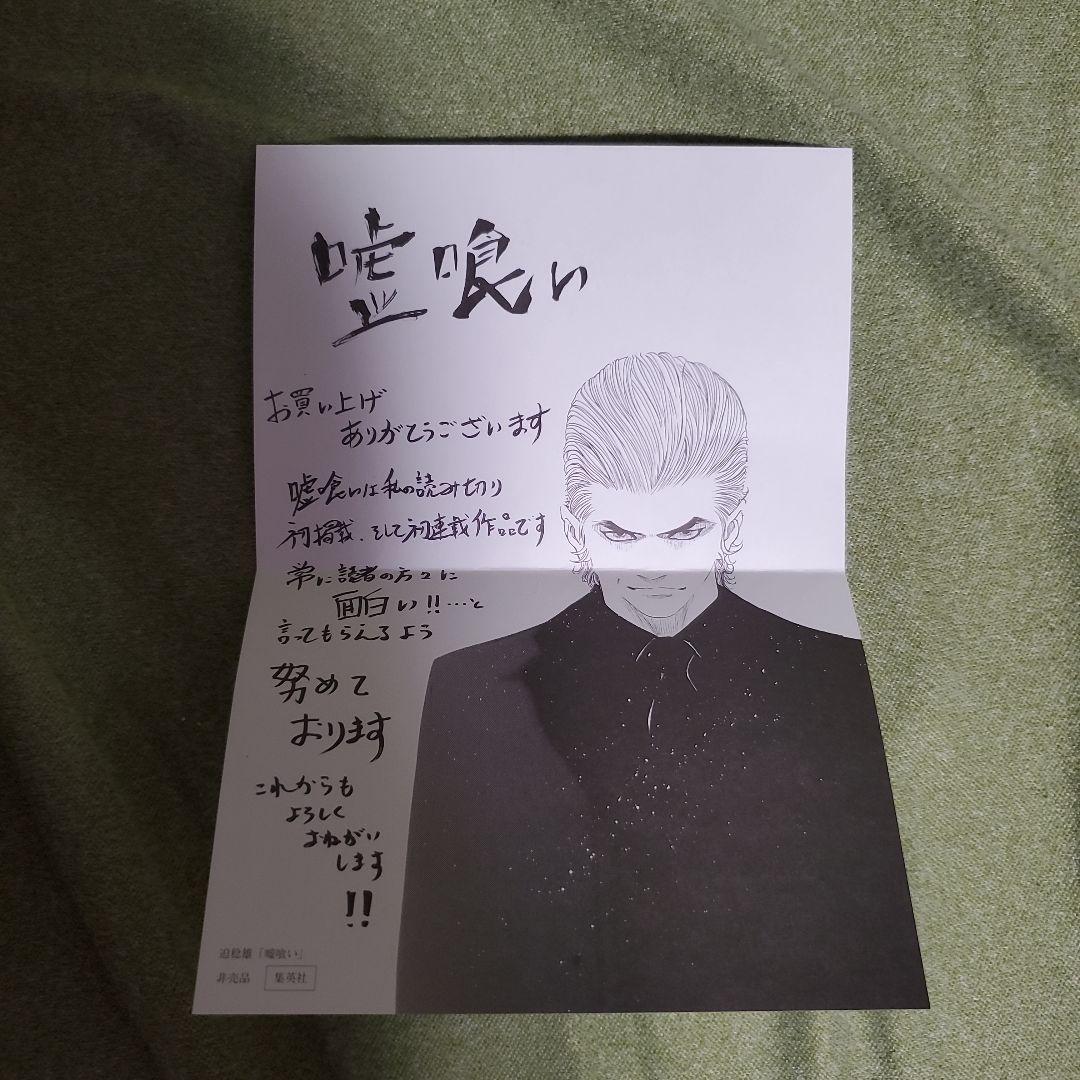 嘘喰い
お買い上げ
ありがとうございます
嘘喰いは私の読み切り
初掲載、そして初連載作品です
常に読者の方々に
面白い!!…と
言ってもらえるよう
努めて
おります
これからも
よろしく
おねがい
します
!!
迫稔雄「嘘喰い」
非売品 集英社